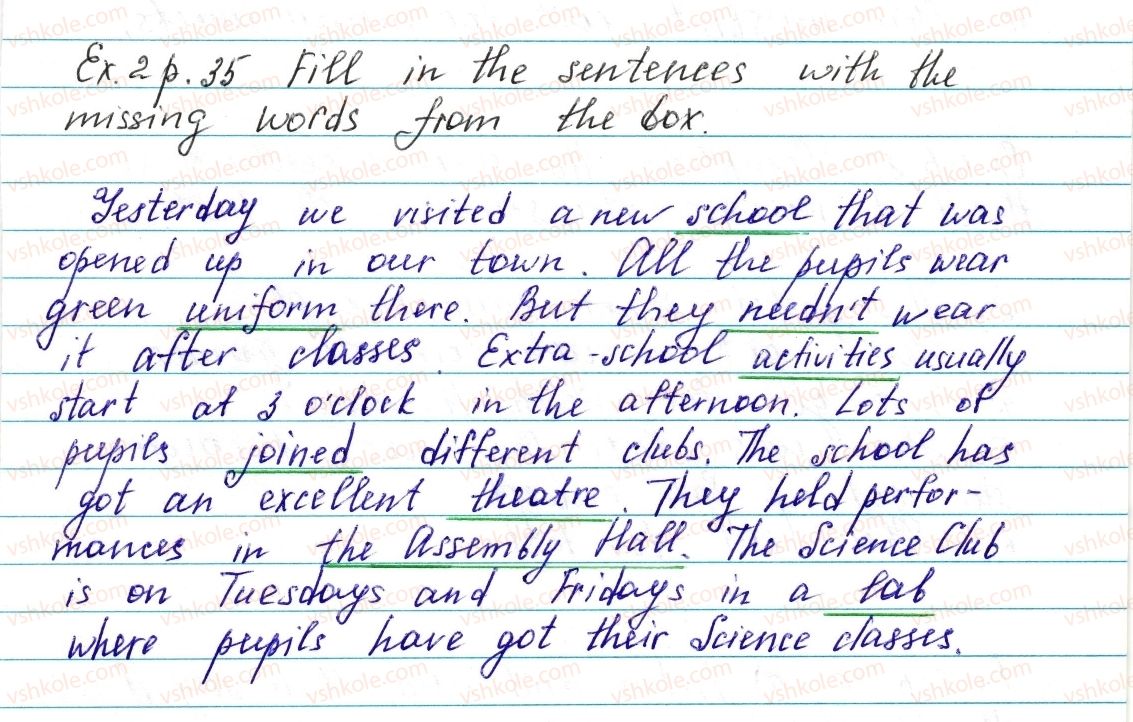 Ex. 2 p. 35 Fill in the sentences with the
missing words from the box.
Yesterday we visited a new school that was
opened up in our town. All the pupils wear
green uniform there. But they needn't wear
it after classes. Extra-school activities usually
start at 3 o'clock in the afternoon. Lots of
pupils joined different clubs. The school has
got an excellent theatre. They held perfor-
mances in the Assembly Hall. The Science Club
is on Tuesdays and Fridays in a lab
where pupils have got their Science classes.